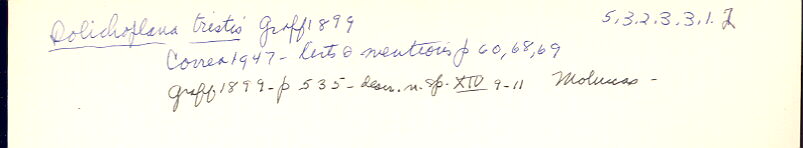 Dolichoplana tristis Graff 1899 5.3.2.3.3.1.2
Correa 1947 - lists & mentions p 60, 68, 69
Graff 1899 - p 535 - descr. n. sp. XIV 9-11 Moluccas -